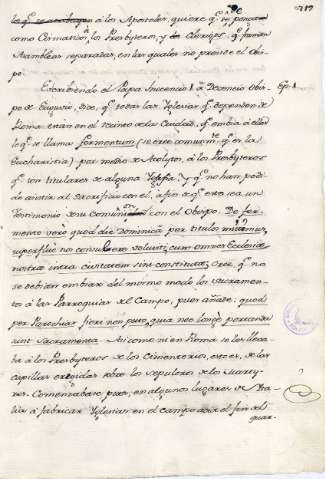 á los Apostoles, quiere qᵉ
como Comun los Presbyteros, y Clerigos, qᵉ forman
Asambleas separadas, en las quales no preside el Obis-
po.
Escribiendo el Papa Inocencio I á Decencio Obis-
po de Eugubio, dice, qᵉ todas las Yglesias qᵉ dependen de
Roma estan en el recinto de la Ciudad, qᵉ embia á ellas
lo qᵉ se llama formentum (se cree comunmᵗᵉ qᵉ es la
Eucharistia) por medio de Acolytos, á los Presbyteros
qᵉ son titulares de alguna Yglesia y qᵉ no han podi-
do asistir al sacrificio con el, á fin de qᵉ este sea un
testimonio de su comunion con el Obispo. De fer-
mento verò quod die Dominica per titulos mittimus,
superfluè nos consulere voluisti, cum omnes Ecclesiæ
nostræ intra civitatem sint constitutæ. Cree qᵉ no
se debian embiar del mismo modo los sacramen-
tos á las Parroquias del Campo, pues añade: quod
per Parochias fieri non puto, quia nec longè portanda
sunt Sacramenta. Asi como ni en Roma se les lleva-
ba á los Presbyteros de los Cimenterios, esto es, de las
capillas erigidas sobre los sepulcros de los marty-
res. Comenzabase pues, en algunos lugares de Ita-
lia á fabricar Yglesias en el campo acia el fin del